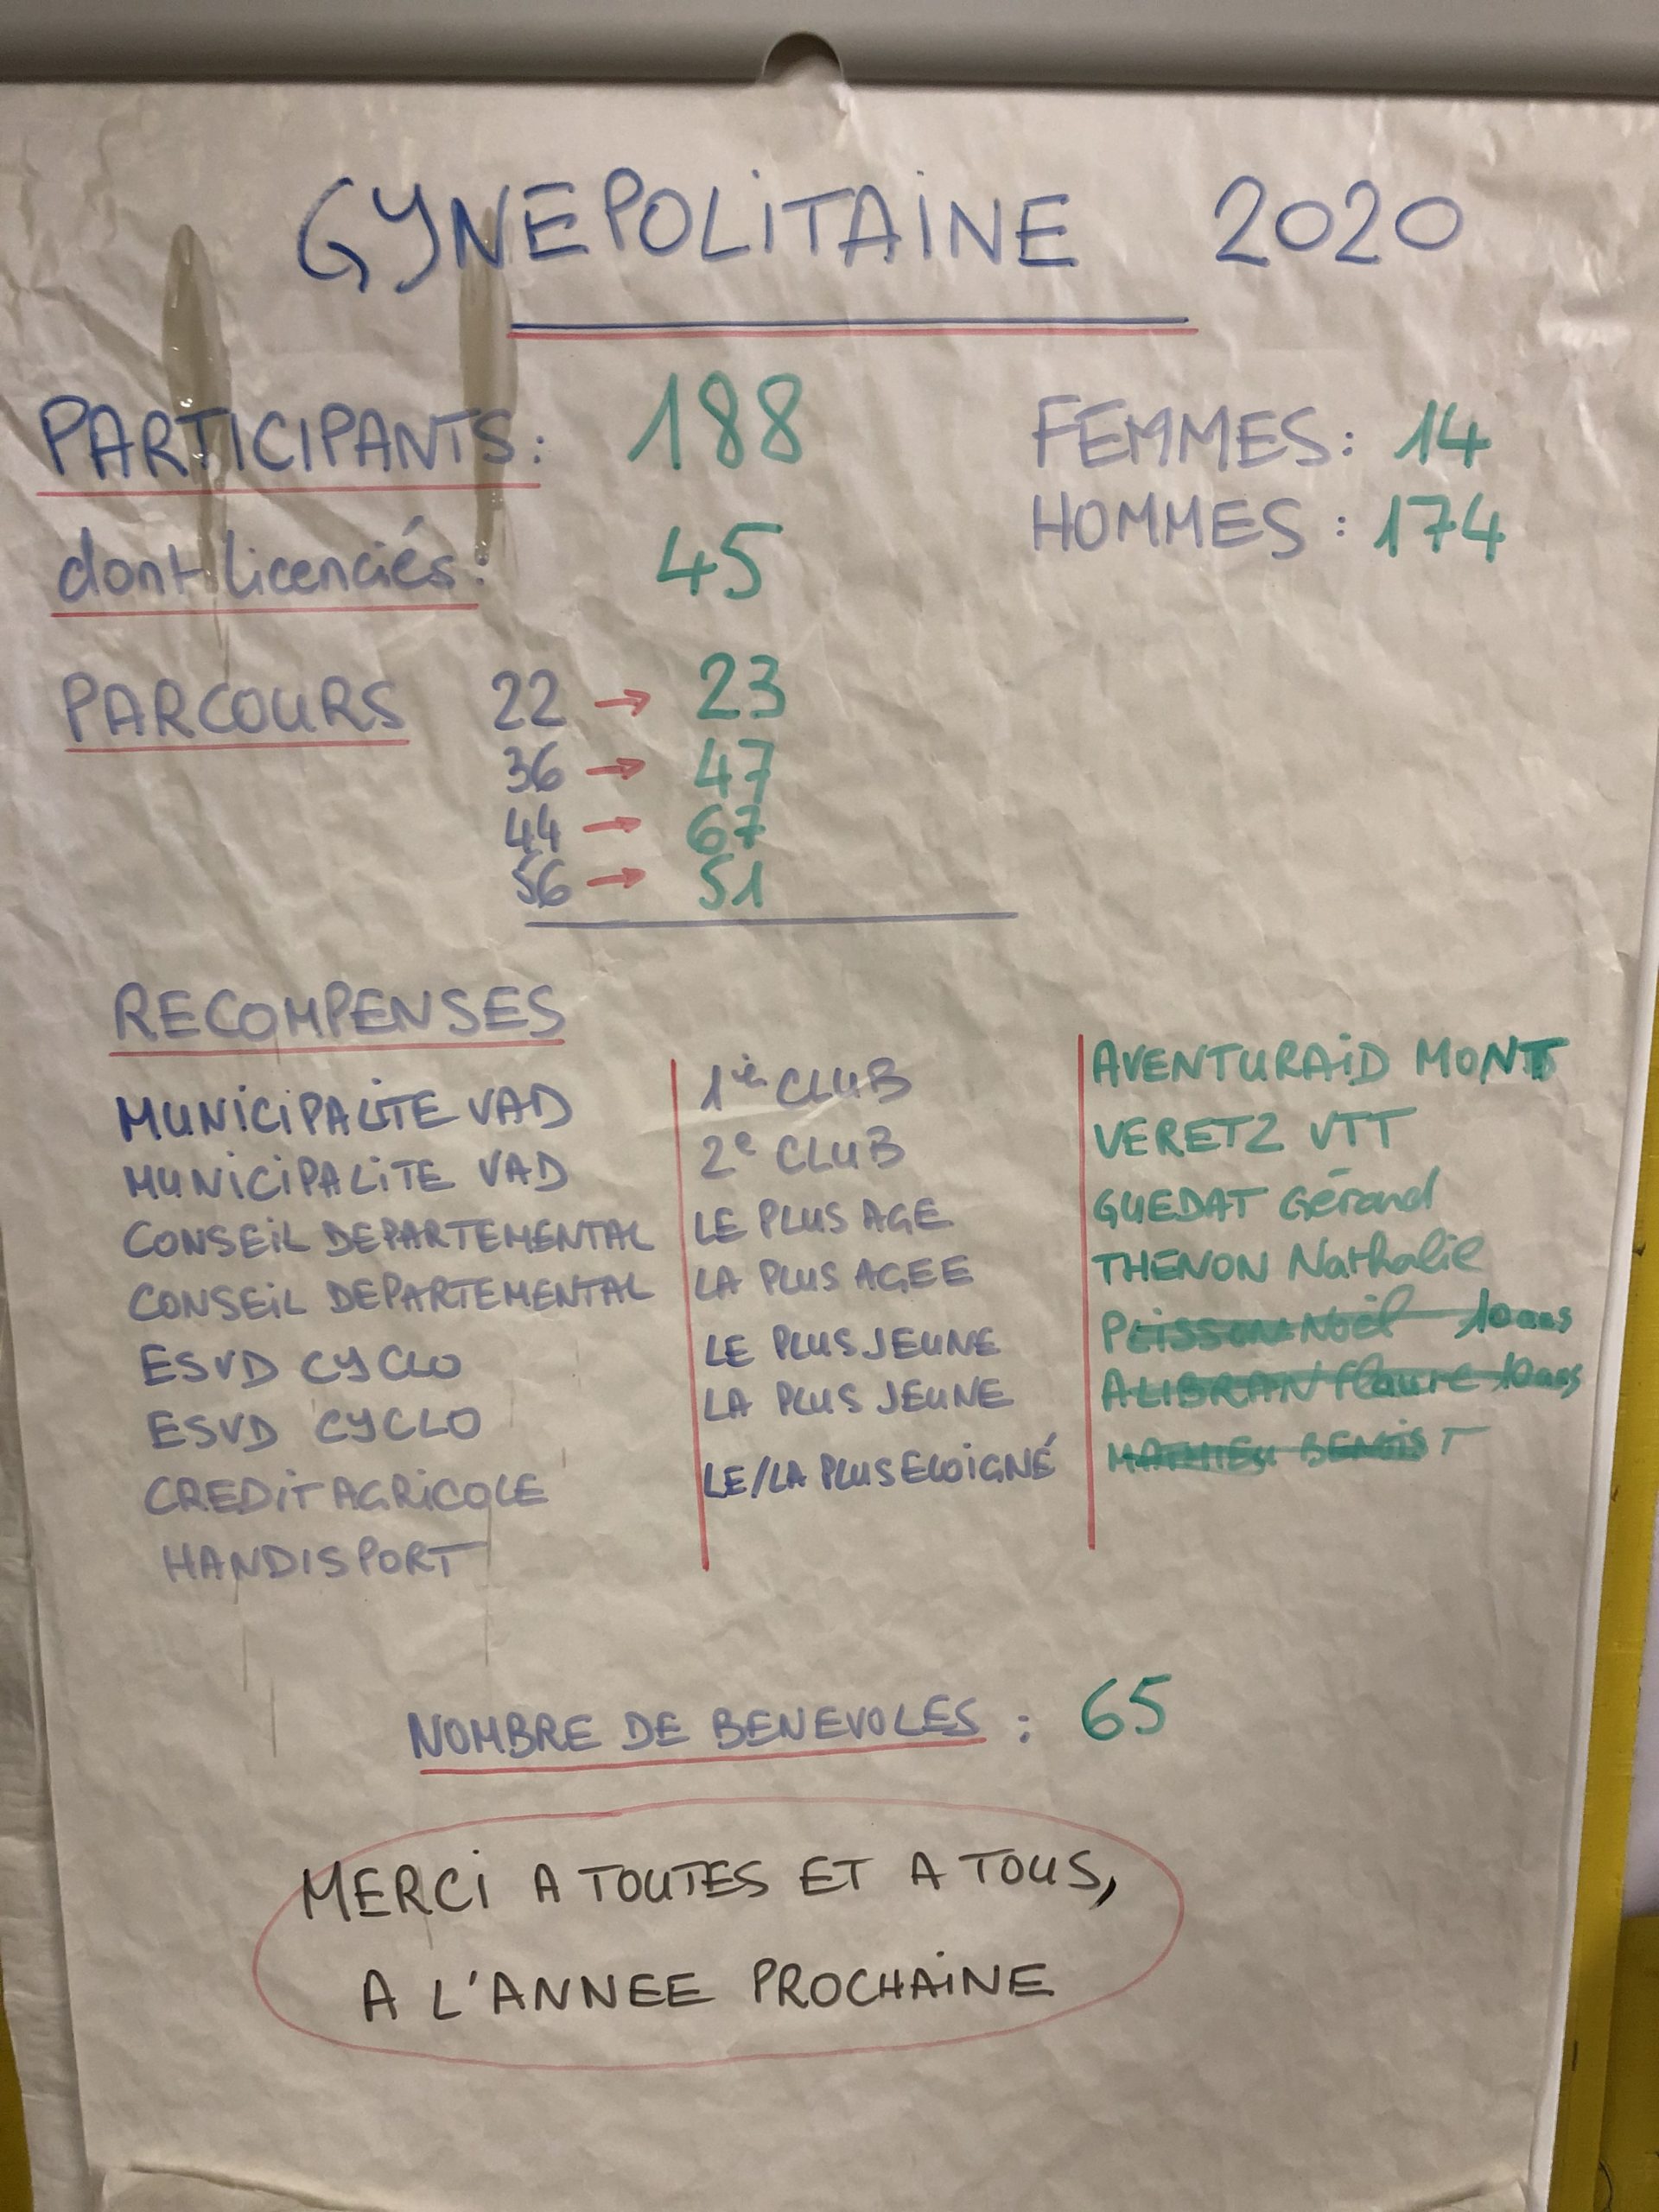 GYNEPOLITAINE 2020
PARTICIPANTS: 188
FEMMES: 14
HOMMES: 174
dont licenciés: 45
PARCOURS 22 → 23
36 → 47
44 → 67
56 → 51
RECOMPENSES
MUNICIPALITE VAD 1è CLUB AVENTURAID MONTS
MUNICIPALITE VAD 2e CLUB VERETZ VTT
CONSEIL DEPARTEMENTAL LE PLUS AGE GUEDAT Gérard
CONSEIL DEPARTEMENTAL LA PLUS AGEE THENON Nathalie
ESVD CYCLO LE PLUS JEUNE Noël 10ans
ESVD CYCLO LA PLUS JEUNE ALIBRAN 10ans
CREDIT AGRICOLE LE/LA PLUS ELOIGNÉ MATHIEU BENOIST
HANDISPORT
NOMBRE DE BENEVOLES : 65
MERCI A TOUTES ET A TOUS,
A L'ANNEE PROCHAINE